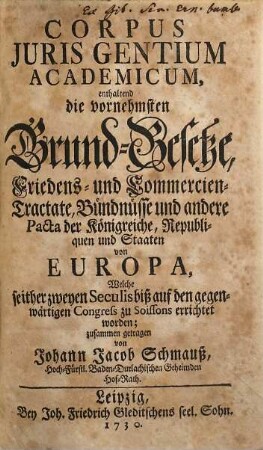 CORPUS
JURIS GENTIUM
ACADEMICUM,
enthaltend
die vornehmsten
Grund-Gesetze,
Friedens- und Commercien-
Tractate, Bündnüsse und andere
Pacta der Königreiche, Republi-
quen und Staaten
von
EUROPA,
Welche
seither zweyen Seculis biß auf den gegen-
wärtigen Congress zu Soissons errichtet
worden;
zusammen getragen
von
Johann Jacob Schmauß,
Hoch-Fürstl. Baden-Durlachischen Geheimden
Hof-Rath.
Leipzig,
Bey Joh. Friedrich Gleditschens seel. Sohn.
1730.